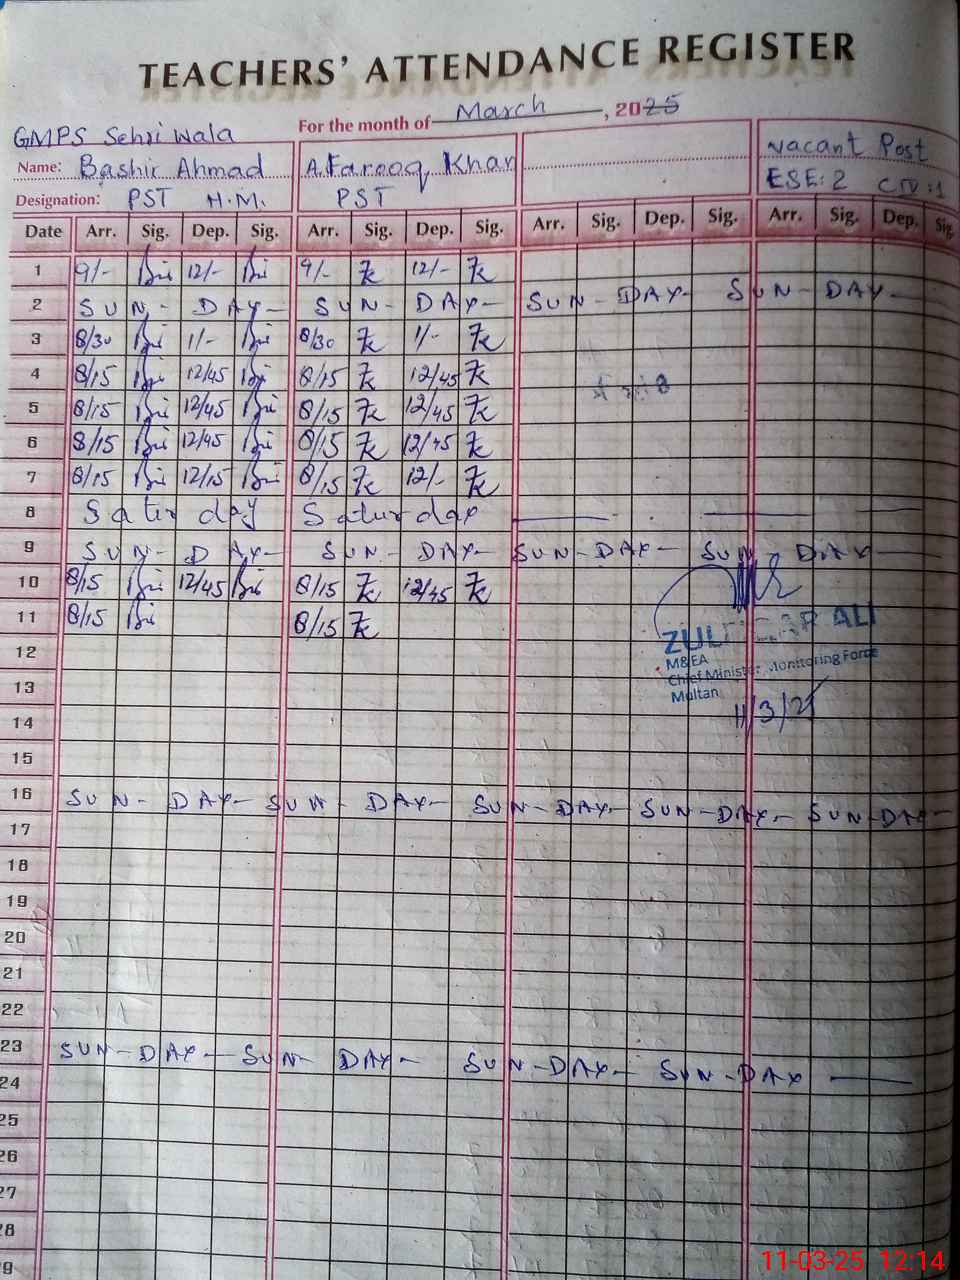 TEACHERS' ATTENDANCE REGISTER
For the month of March, 2025
GMPS Sehri wala
Name: Bashir Ahmad A.Farooq Khan vacant Post
Designation: PST H.M. PST ESE:2
Date Arr. Sig. Dep. Sig. Arr. Sig. Dep. Sig. Arr. Sig. Dep. Sig. Arr. Sig. Dep. Sig.
1 9/- 12/- 9/- 12/-
2 SUN - DAY - SUN - DAY - SUN - DAY - SUN - DAY -
3 8/30 1/- 8/30 1/-
4 8/15 12/45 8/15 12/45
5 8/15 12/45 8/15 12/45
6 8/15 12/45 8/15 12/45
7 8/15 12/15 8/15 12/-
8 Satur day Satur day
9 SUN - DAY - SUN - DAY - SUN - DAY - SUN DAY
10 8/15 12/45 8/15 12/45
11 8/15 8/15
ALI
M&EA
Chief Minister Monitoring Force
Multan
11/3/25
12
13
14
15
16 SUN - DAY - SUN - DAY - SUN - DAY - SUN - DAY - SUN - DAY -
17
18
19
20
21
22
23 SUN - DAY - SUN - DAY - SUN - DAY - SUN - DAY
24
25
26
27
28
29
11-03-25 12:14